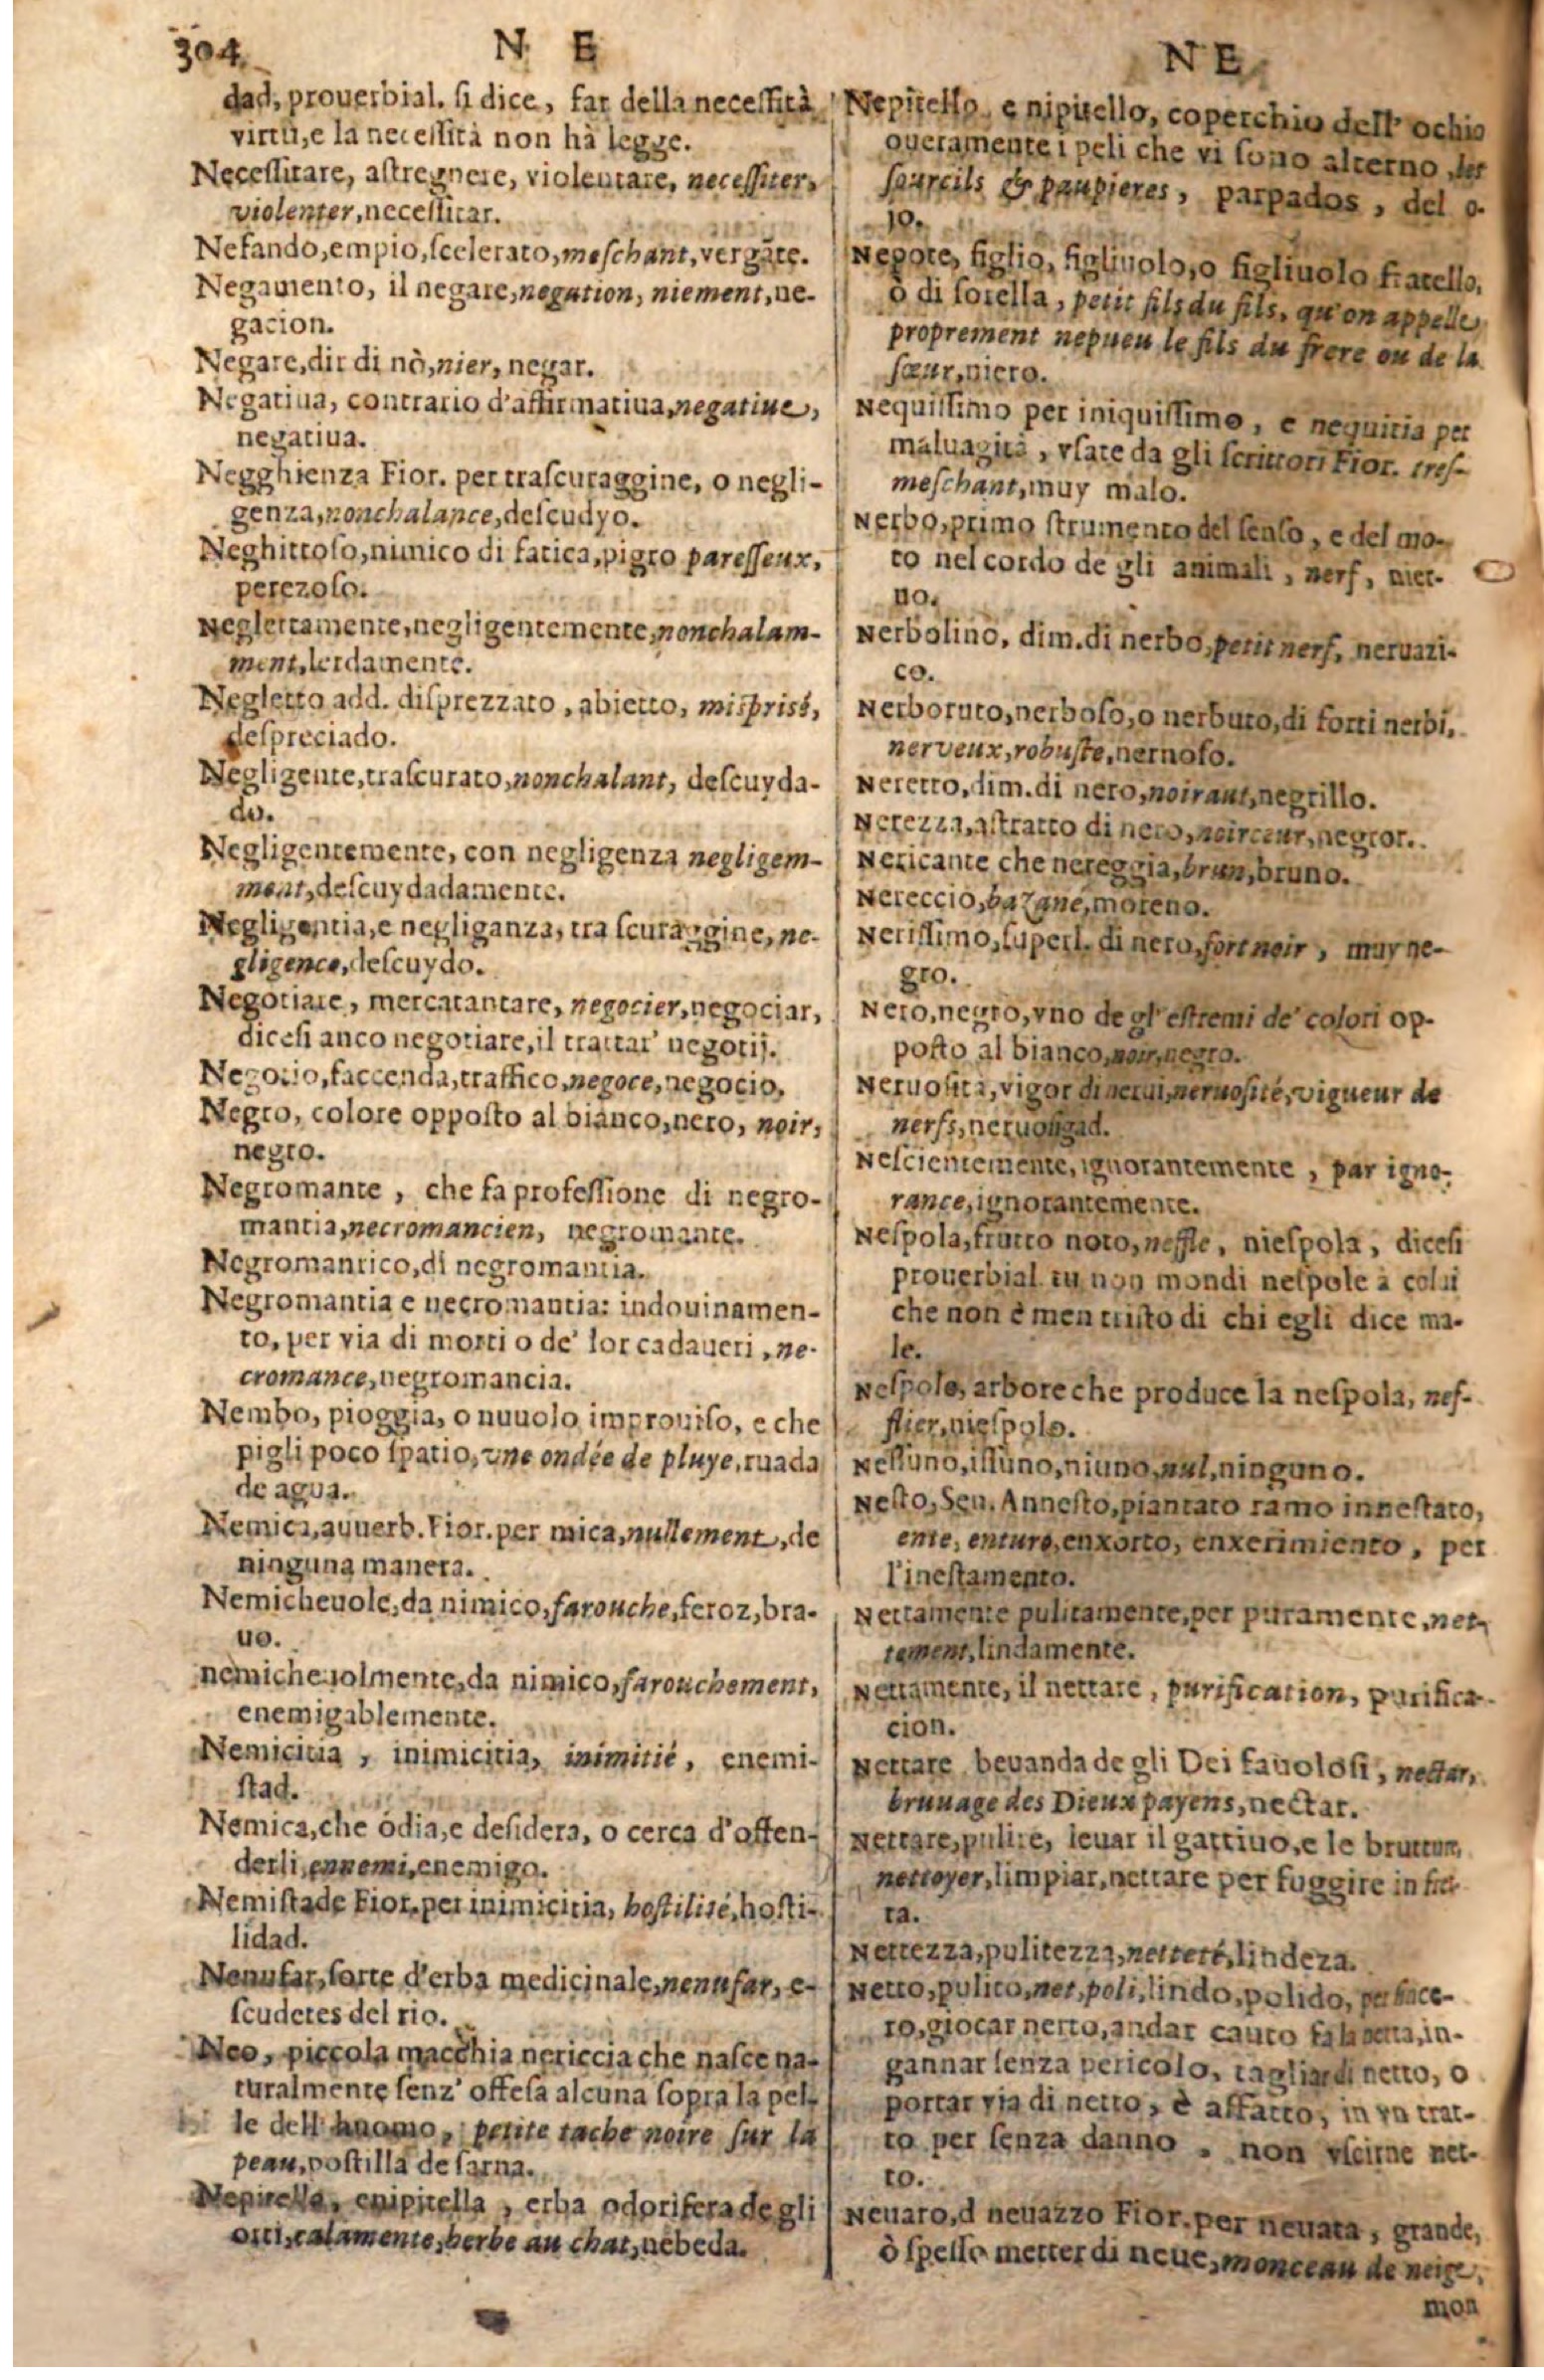 304 N E
dad, prouerbial. ſi dice, far della neceſſità
virtù, e la neceſſità non hà legge.
Neceſſitare, aſtregnere, violentare, neceſſiter,
violenter, neceſſitar.
Nefando, empio, ſcelerato, meſchant, vergãte.
Negamento, il negare, negation, niement, ne-
gacion.
Negare, dir di nò, nier, negar.
Negatiua, contrario d'affirmatiua, negatiue,
negatiua.
Negghienza Fior. per traſcuraggine, o negli-
genza, nonchalance, deſcudyo.
Neghittoſo, nimico di fatica, pigro pareſſeux,
perezoſo.
Neglettamente, negligentemente, nonchalam-
ment, lerdamente.
Negletto add. diſprezzato, abietto, miſpriſé,
deſpreciado.
Negligente, traſcurato, nonchalant, deſcuyda-
do.
Negligentemente, con negligenza negligem-
ment, deſcuydadamente.
Negligentia, e negliganza, tra ſcuraggine, ne-
gligence, deſcuydo.
Negotiare, mercatantare, negocier, negociar,
diceſi anco negotiare, il trattar' negotij.
Negotio, faccenda, traffico, negoce, negocio.
Negro, colore oppoſto al bianco, nero, noir,
negro.
Negromante, che fa profeſſione di negro-
mantia, necromancien, negromante.
Negromantico, di negromantia.
Negromantia e necromantia: indouinamen-
to, per via di morti o de' lor cadaueri, ne-
cromance, negromancia.
Nembo, pioggia, o nuuolo improuiſo, e che
pigli poco ſpatio, vne ondée de pluye, ruada
de agua.
Nemica, auuerb. Fior. per mica, nullement, de
ninguna manera.
Nemicheuole, da nimico, farouche, feroz, bra-
uo.
nemicheuolmente, da nimico, farouchement,
enemigablemente.
Nemicitia, inimicitia, inimitié, enemi-
ſtad.
Nemica, che ódia, e deſidera, o cerca d'offen-
derli, ennemi, enemigo.
Nemiſtade Fior. per inimicitia, hoſtilité, hoſti-
lidad.
Nenufar, ſorte d'erba medicinale, nenufar, e-
ſcudetes del rio.
Neo, piccola macchia nericcia che naſce na-
turalmente ſenz' offeſa alcuna ſopra la pel-
le dell' huomo, petite tache noire ſur la
peau, poſtilla de ſarna.
Nepitella, enipitella, erba odorifera de gli
orti, calamente, herbe au chat, nebeda.
NE
Nepitello, e nipitello, coperchio dell' ochio
oueramente i peli che vi ſono alterno, les
ſourcils & paupieres, parpados, del o-
jo.
Nepote, figlio, figliuolo, o figliuolo fratello,
ò di ſorella, petit fils du fils, qu'on appelle
proprement nepueu le fils du frere ou de la
ſœur, nieto.
Nequiſſimo per iniquiſſimo, e nequitia per
maluagità, vſate da gli ſcrittori Fior. treſ-
meſchant, muy malo.
Nerbo, primo ſtrumento del ſenſo, e del mo-
to nel cordo de gli animali, nerf, nier-
uo.
Nerbolino, dim. di nerbo, petit nerf, neruazi-
co.
Nerboruto, nerboſo, o nerbuto, di forti nerbi,
nerveux, robuſte, nernoſo.
Neretto, dim. di nero, noiraut, negrillo.
Nerezza, aſtratto di nero, noirceur, negror.
Nericante che nereggia, brun, bruno.
Nereccio, bazané, moreno.
Neriſſimo, ſuperl. di nero, fort noir, muy ne-
gro.
Nero, negro, vno de gl' eſtremi de' colori op-
poſto al bianco, noir, negro.
Neruoſità, vigor di nerui, neruoſité, vigueur de
nerfs, neruoſigad.
Neſcientemente, ignorantemente, par igno-
rance, ignorantemente.
Neſpola, frutto noto, neffle, nieſpola, diceſi
prouerbial. tu non mondi neſpole a colui
che non è men triſto di chi egli dice ma-
le.
Neſpolo, arbore che produce la neſpola, nef-
flier, nieſpolo.
Neſſuno, iſſuno, niuno, nul, ninguno.
Neſto, Sen. Anneſto, piantato ramo inneſtato,
ente, enture, enxorto, enxerimiento, per
l'ineſtamento.
Nettamente pulitamente, per puramente, net-
tement, lindamente.
Nettamente, il nettare, purification, purifica-
cion.
Nettare beuanda de gli Dei fauoloſi, nectar,
bruuage des Dieux payens, nectar.
Nettare, pulire, leuar il gattiuo, e le brutture,
nettoyer, limpiar, nettare per fuggire in fret-
ta.
Nettezza, pulitezza, netteté, lindeza.
Netto, pulito, net, poli, lindo, polido, per ſince-
ro, giocar netto, andar cauto fa la netta, in-
gannar ſenza pericolo, tagliar di netto, o
portar via di netto, è affatto, in vn trat-
to per ſenza danno, non vſcirne net-
to.
Neuaro, d neuazzo Fior. per neuata, grande,
ò ſpeſſo metter di neue, monceau de neige,
mon